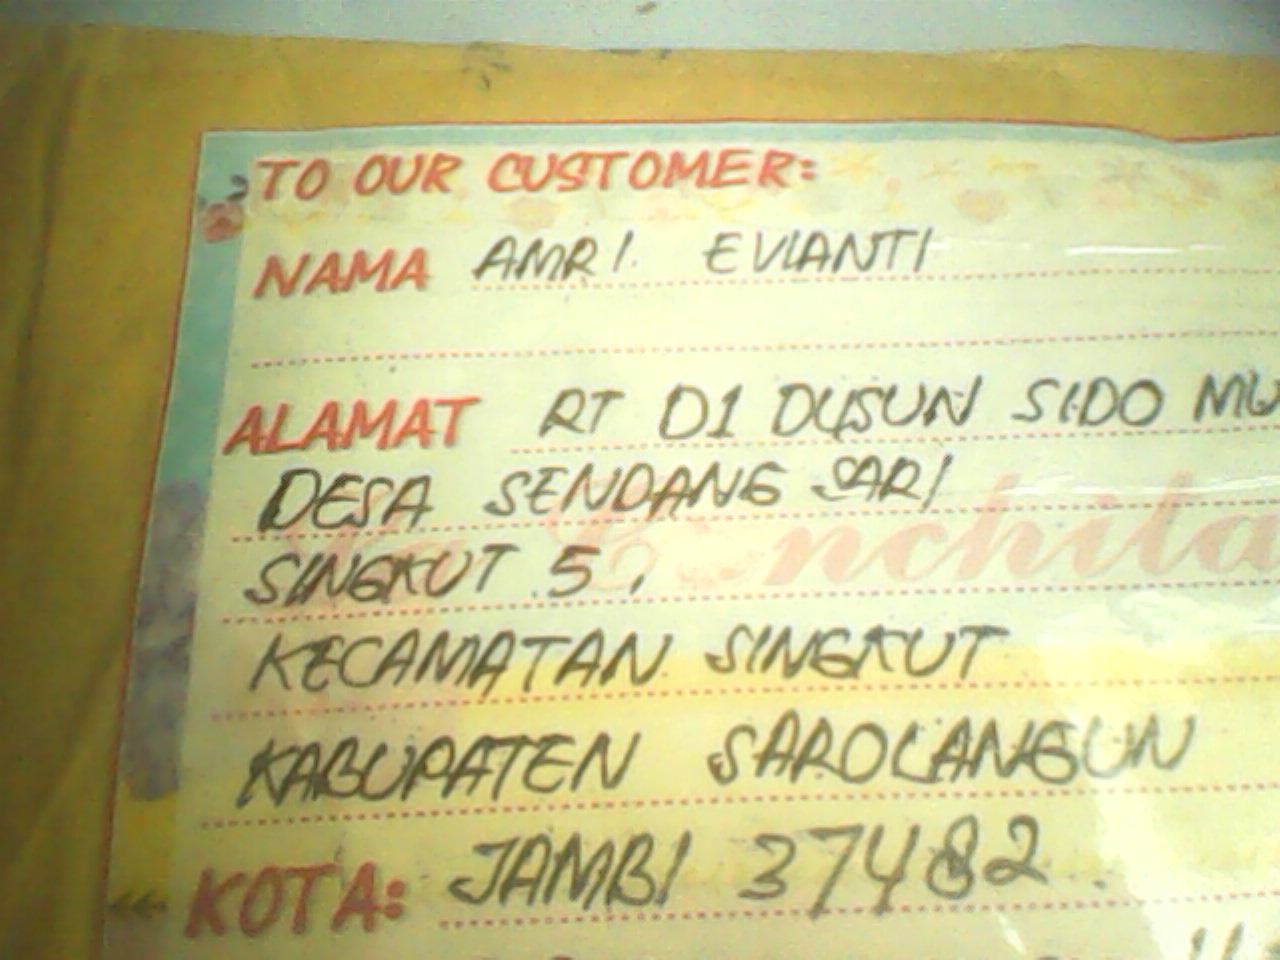 TO OUR CUSTOMER:
NAMA AMRI EVIANTI
ALAMAT RT 01 DUSUN SIDO MU
DESA SENDANG SARI
SINGKUT 5,
KECAMATAN SINGKUT
KABUPATEN SAROLANGUN
KOTA: JAMBI 37482.